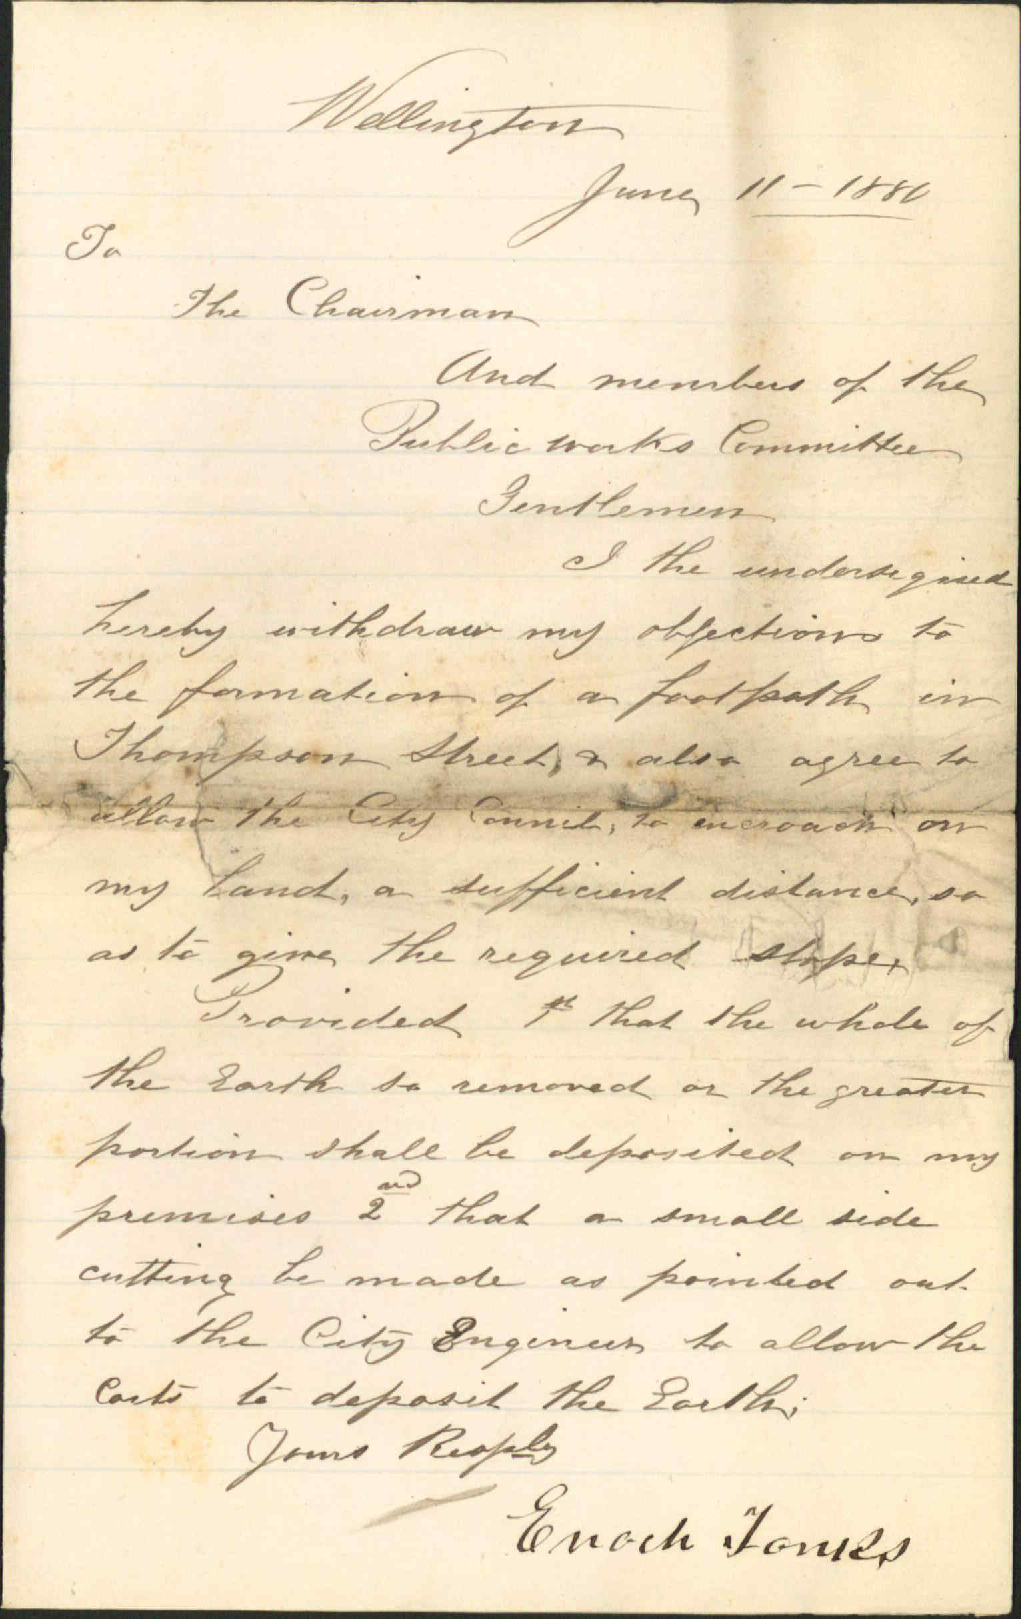 Wellington
June 11 - 1880
To
The Chairman
And members of the
Public works Committee
Gentlemen
I the undersigined
hereby withdraw my objections to
the formation of a footpath in
Thompson Street, & also agree to
allow the City Council, to encroach on
my land, a sufficient distance, so
as to give the required slope,
Provided 1st that the whole of
the Earth so removed or the greater
portion shall be deposited on my
premises 2nd that a small side
cutting be made as pointed out
to the City Engineer to allow the
Carts to deposit the Earth;
Yours Resply
Enoch Tonks